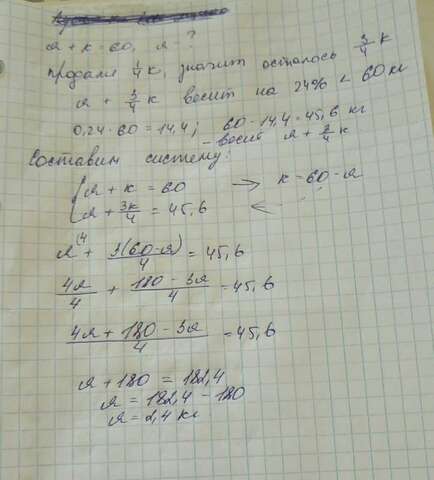 я + к = 60, я - ?
продали 1/4 к, значит осталось 3/4 к
я + 3/4 к весит на 24% < 60 кг
0,24 · 60 = 14,4; 60 - 14,4 = 45,6 кг
- весит я + 3/4 к
Составим систему:
{ я + к = 60 → к = 60 - я
я + 3к/4 = 45,6 ←
я (4 + 3(60 - я)/4 = 45,6
4я/4 + 180 - 3я/4 = 45,6
4я + 180 - 3я/4 = 45,6
я + 180 = 182,4
я = 182,4 - 180
я = 2,4 кг